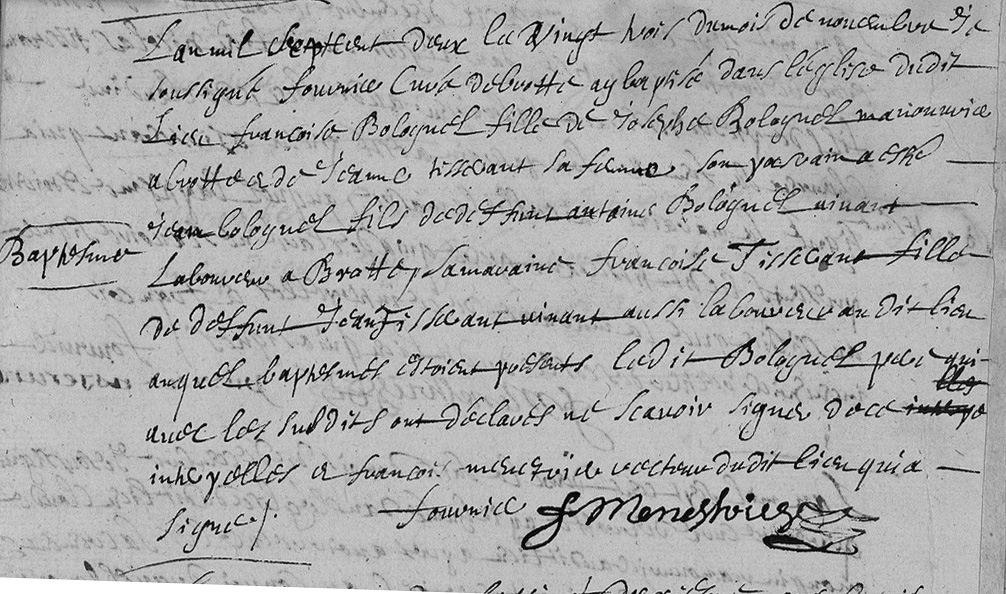 L'an mil sept cent deux le vingt trois du mois de novembre Je
soussigné fournier Curé de brotte ay baptisé dans l'église dudit
Lieu françoise Bolognel fille de Joseph Bolognel manouvrie
a brotte e de Jeanne tisserant sa femme, son parrain a esté
Jean bolognel fils de deffunt antoine Bolognel vivant
Baptesme
Laboureur a Brotte, sa maraine françoise Tisserant fille
de deffunt Jean Tisserant vivant aussi laboureur audit lieu
auquel baptesmes estoient présents ledit Bolognel pere qui
avec les susdits ont déclarés ne scavoir signer de ce
interpellés e françois menestrie recteur dudit lieu qui a
signé /.
fournier f Menestrier